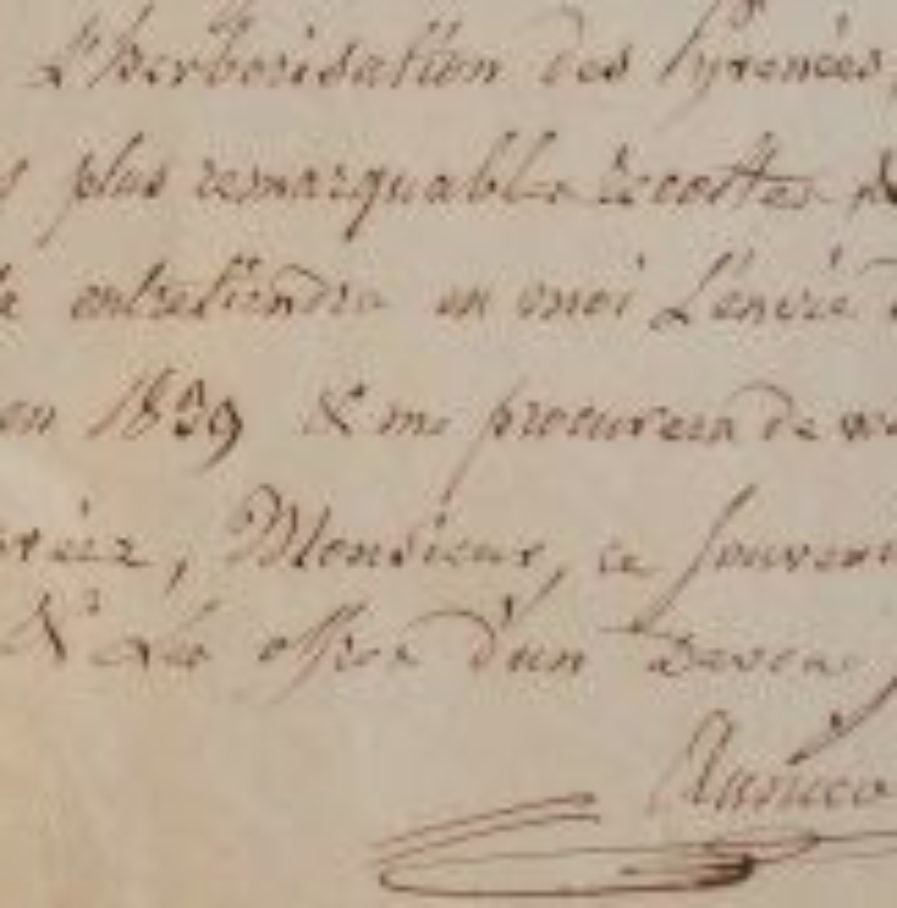 L'herborisation des Pyrenées,
plus remarquables récoltes
entretiendra en moi L'envie
en 1839 & me procurera de
Monsieur, ce souveni
& Les offres d'un